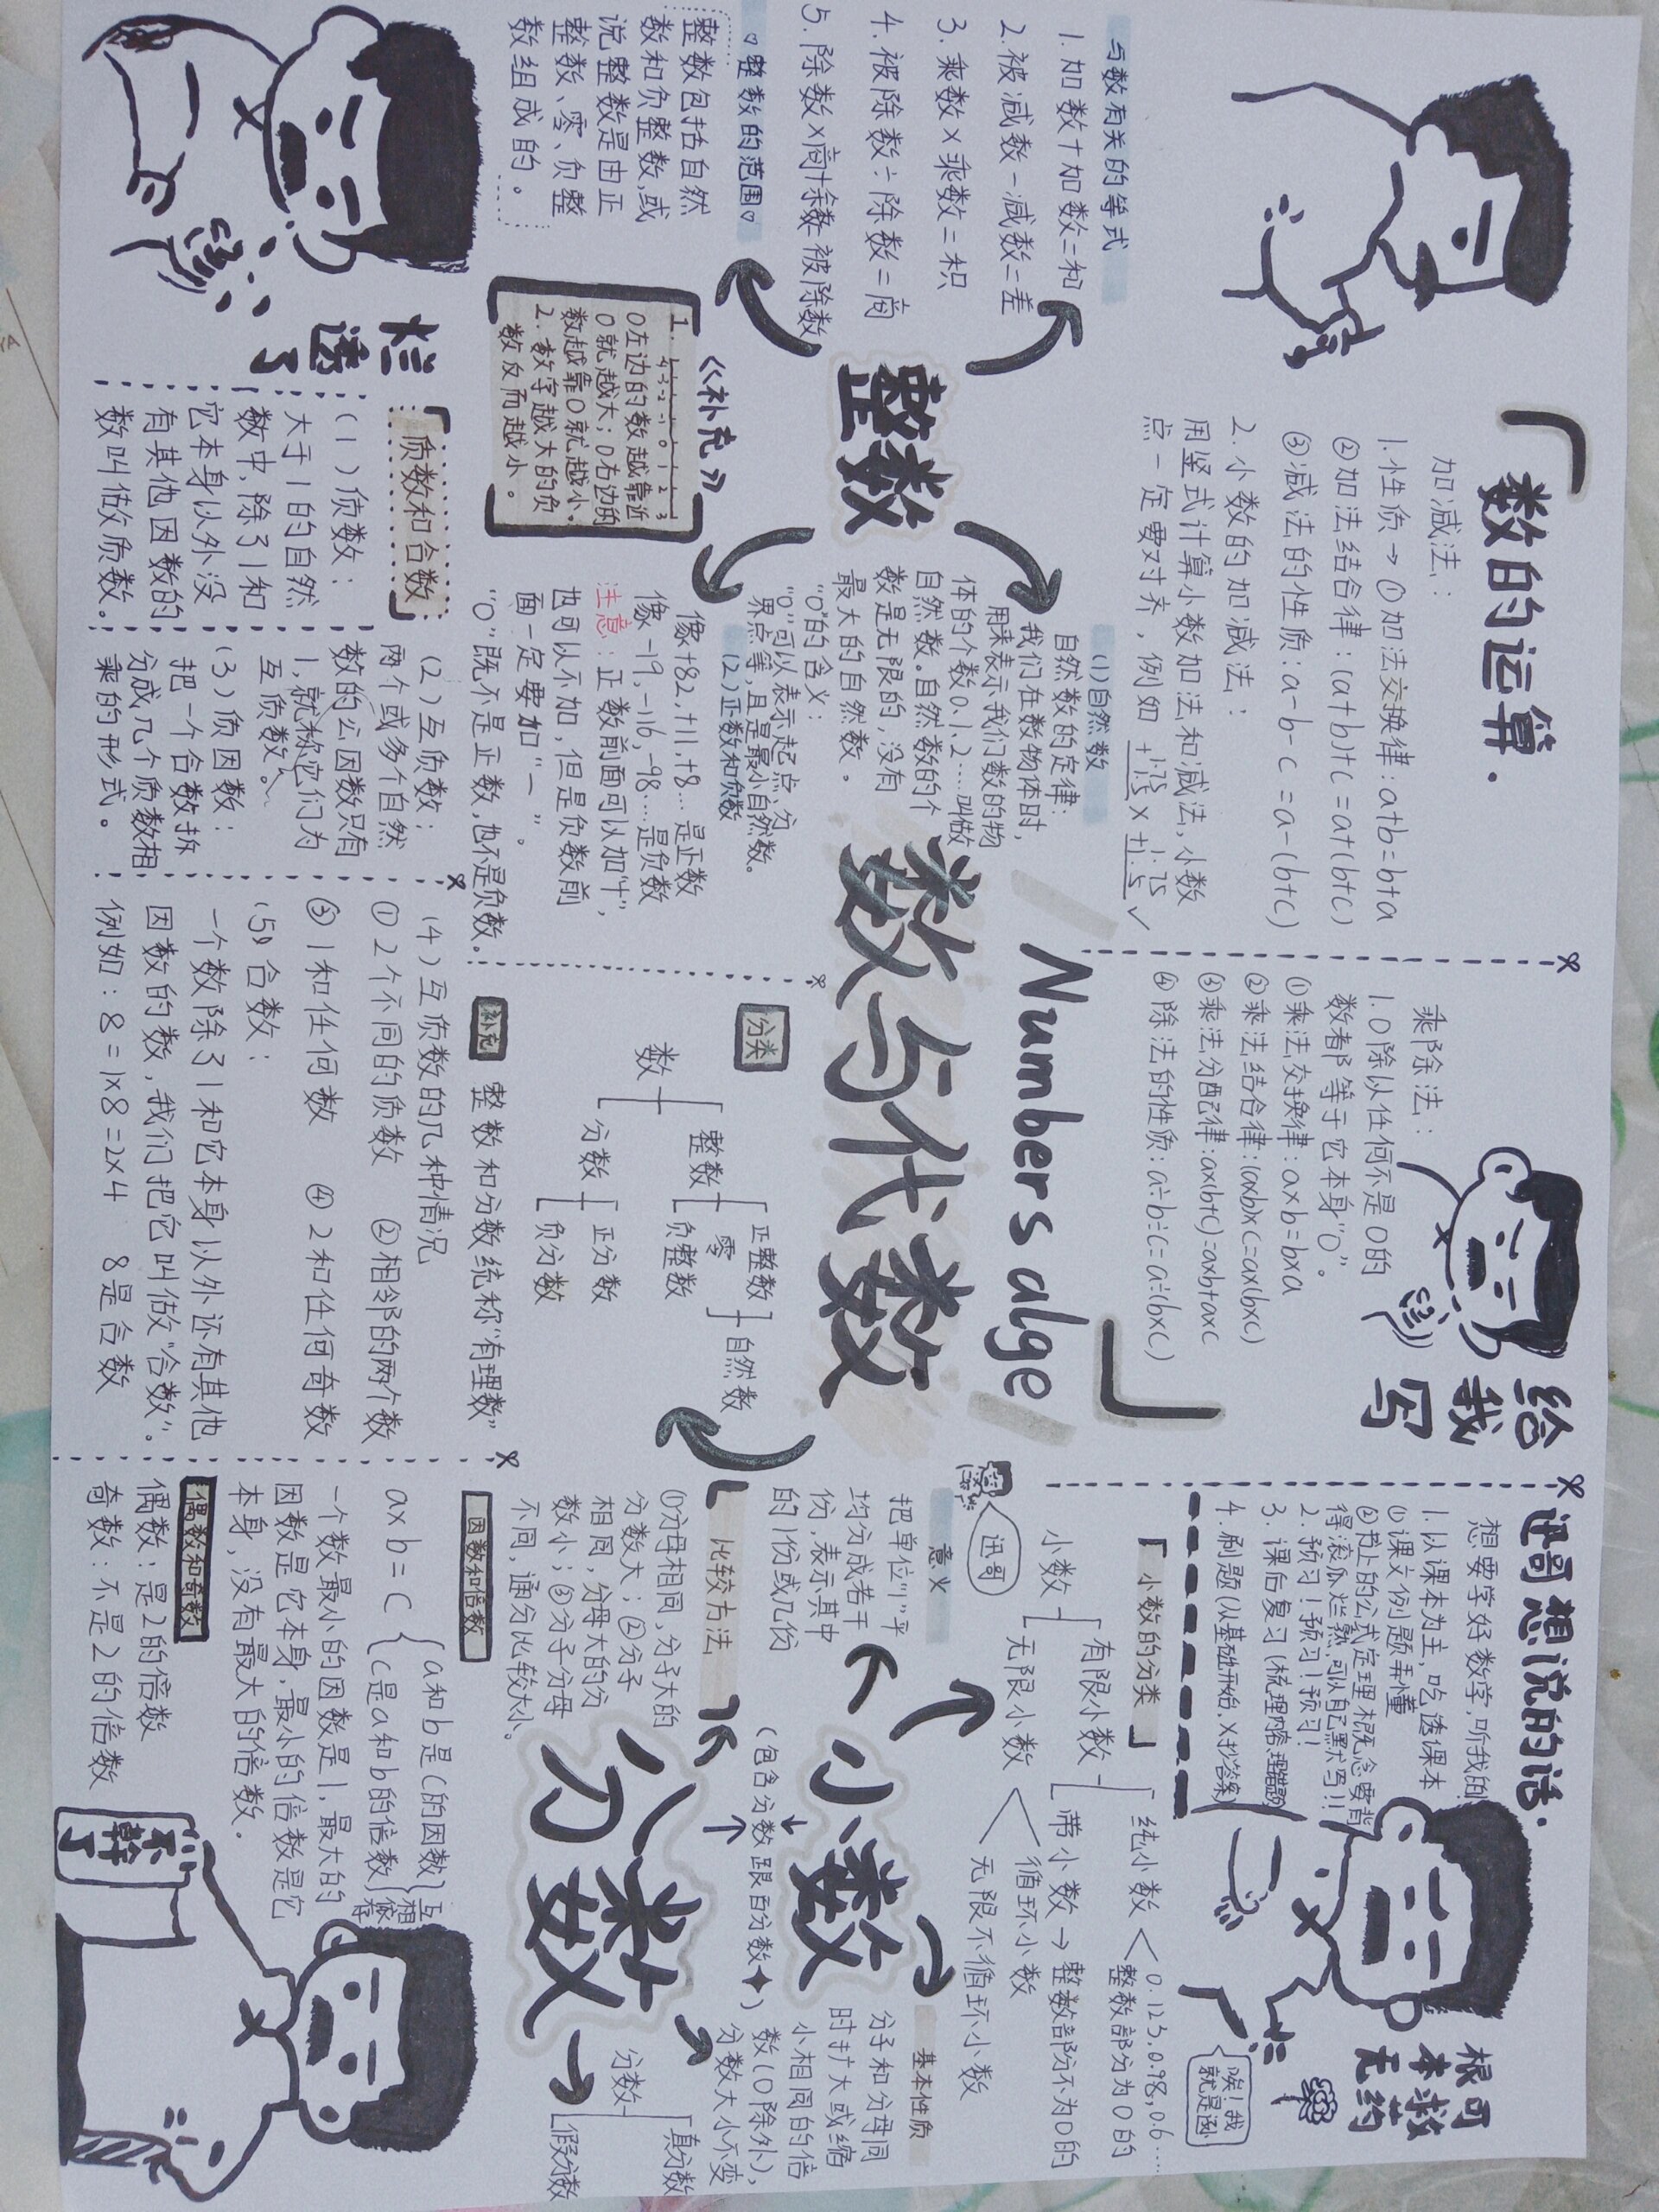 「数的运算.
加减法:
1.性质→①加法交换律:a+b=b+a
②加法结合律:(a+b)+c=a+(b+c)
③减法的性质:a-b-c=a-(b+c)
2.小数的加减法:
用竖式计算小数加法和减法,小数
点一定要对齐,例如
乘除法:
1.0除以任何不是0的
数都等于它本身"0"。
①乘法交换律:a×b=b×a
②乘法结合律:(a×b)×c=a×(b×c)
③乘法分配律:a×(b+c)=a×b+a×c
④除法的性质:a÷b÷c=a÷(b×c)
」
给
我
写
迅哥想说的话.
想要学好数学,听我的!
1.以课本为主,吃透课本
①课文例题弄懂
②书上的公式定理概念要背
得滚瓜烂熟,可以自己默写!!
2.预习!预习!预习!
3.课后复习(梳理内容,理错题)
4.刷题(从基础开始,×抄答案)
根本无
可救药
唉!我
就是迅
与数有关的等式
1.加数+加数=和
2.被减数-减数=差
3.乘数×乘数=积
4.被除数÷除数=商
5.除数×商+余数=被除数
整数
▽整数的范围▽
整数包括自然
数和负整数,或
说整数是由正
整数、零、负整
数组成的。
《补充》
1. -4 -3 -2 -1 0 1 2 3
0左边的数越靠近
0就越大;0右边的
数越靠0就越小。
2.数字越大的负
数反而越小。
(1)自然数
自然数的定律:
我们在数物体时,
用来表示我们数的物
体的个数0.1.2....叫做
自然数。自然数的个
数是无限的,没有
最大的自然数。
"0"的含义:
"0"可以表示起点,分
界点等,且是最小自然数。
(2)正数和负数
像+82,+11,+8...是正数
像-19,-116,-98...是负数
注意:正数前面可以加"+",
也可以不加,但是负数前
面一定要加"一"。
"0"既不是正数,也不是负数.
Numbers alge
数与代数
分类
数
整数
正整数
零
负整数
自然数
分数
正分数
负分数
补充 整数和分数统称"有理数"
「小数的分类」
迅哥
小数
有限小数
纯小数
0.123,0.98,0.6....
整数部分为0的
带小数→整数部分不为0的
无限小数
循环小数
无限不循环小数
小数
(包含分数跟百分数✦)
分数
意义
把单位"1"平
均分成若干
份,表示其中
的1份或几份
比较方法
①分母相同,分子大的
分数大;②分子
相同,分母大的分
数小;③分子分母
不同,通分比较大小.
基本性质
分子和分母同
时扩大或缩
小相同的倍
数(0除外),
分数大小不变
分数
真分数
假分数
烂
透
了
「质数和合数」
(1)质数:
大于1的自然
数中,除了1和
它本身以外没
有其他因数的
数叫做质数.
(2)互质数:
两个或多个自然
数的公因数只有
1,就称它们为
互质数。
(3)质因数:
把一个合数拆
分成几个质数相
乘的形式。
(4)互质数的几种情况
①2个不同的质数 ②相邻的两个数
③1和任何数 ④2和任何奇数
(5)合数:
一个数除了1和它本身以外还有其他
因数的数,我们把它叫做"合数".
例如:8=1×8=2×4 8是合数
因数和倍数
a×b=c
a和b是c的因数
c是a和b的倍数
互相依存
一个数最小的因数是1,最大的
因数是它本身,最小的倍数是它
本身,没有最大的倍数.
偶数和奇数
偶数:是2的倍数
奇数:不是2的倍数
不幹
了